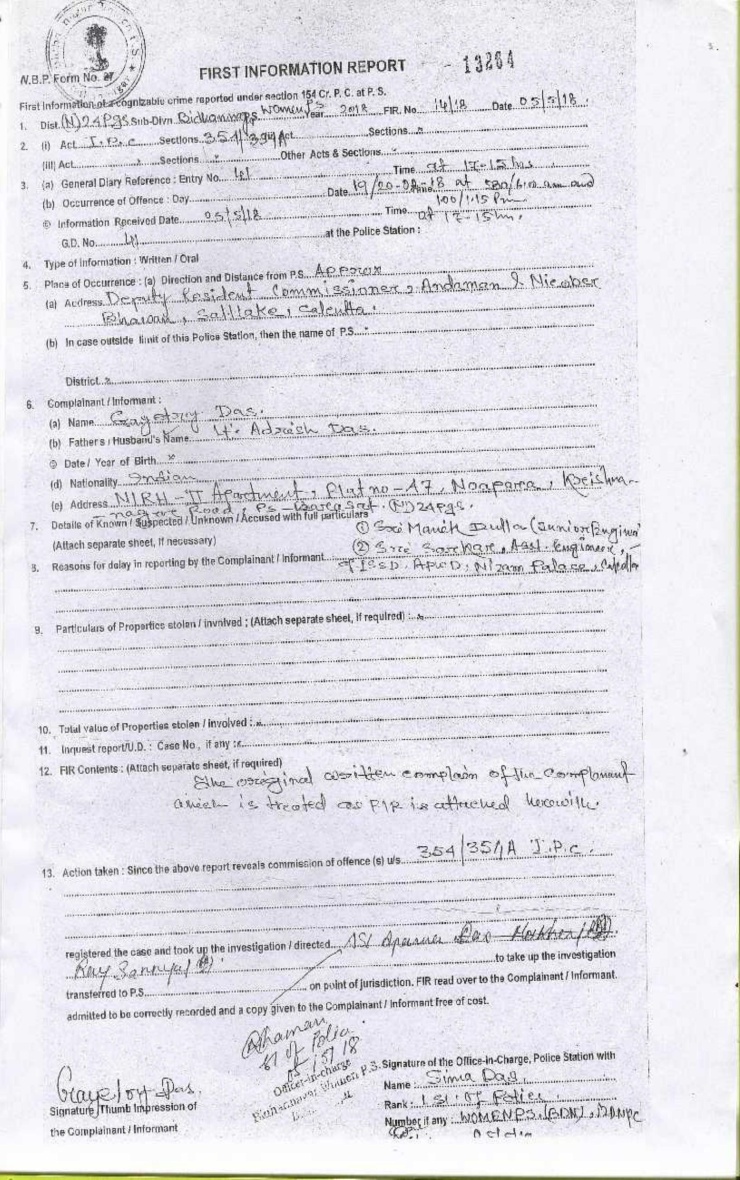 W.B.P. Form No. 27
FIRST INFORMATION REPORT - 13264
First Information of a cognizable crime reported under section 154 Cr. P. C. at P. S.
1. Dist. (N) 24 Pgs Sub-Divn. Bidhannagar P.S. Women PS Year 2018 FIR. No. 14/18 Date 05/5/18.
2. (i) Act I.P.C Sections 354/354A (ii) Act Sections x
(iii) Act x Sections x Other Acts & Sections x
3. (a) General Diary Reference : Entry No. 41 Time at 17-15 hrs
(b) Occurrence of Offence : Day Date 19/20-02-18 at am and
1.15 Pm
© Information Received Date 05/5/18 Time at 17-15 hrs.
G.D. No. 41 at the Police Station :
4. Type of information : Written / Oral
5. Place of Occurrence : (a) Direction and Distance from P.S. Approx
(a) Address Deputy Resident Commissioner, Andaman & Nicober
Bhawan, Saltlake, Calcutta.
(b) In case outside limit of this Police Station, then the name of P.S. x
District x
6. Complainant / Informant :
(a) Name Gayotry Das.
(b) Father's / Husband's Name Lt. Adresh Das.
© Date / Year of Birth x
(d) Nationality Indian
(e) Address NIRH-II Apartment, Flat no-A7, Noapara, Krishna-
nagore Road, Ps-Barasat. (N) 24 Pgs.
7. Details of Known / Suspected / Unknown / Accused with full particulars
(1) Sri Manik Dutta (Junior Engineer)
(Attach separate sheet, if necessary)
(2) Sri Sarkar, Asst. Engineer,
8. Reasons for delay in reporting by the Complainant / Informant
of ISSD, APWD, Nizam Palace,
9. Particulars of Properties stolen / involved ; (Attach separate sheet, if required) : x
10. Total value of Properties stolen / involved : x
11. Inquest report/U.D. : Case No, if any : x
12. FIR Contents : (Attach separate sheet, if required)
The original written complain of the complainant
which is treated as FIR is attached herewith.
13. Action taken : Since the above report reveals commission of offence (s) u/s 354/354A I.P.C.
registered the case and took up the investigation / directed ASI
to take up the investigation
transferred to P.S. on point of jurisdiction. FIR read over to the Complainant / Informant.
admitted to be correctly recorded and a copy given to the Complainant / Informant free of cost.
SI of Police
05/5/18
Officer-in-charge
Bidhannagar Women P.S.
Signature of the Office-in-Charge, Police Station with
Gayotry Das.
Name : Sima Das,
Signature /Thumb Impression of
Rank : SI of Police
the Complainant / Informant
Number if any : WOMEN PS. (BDN),